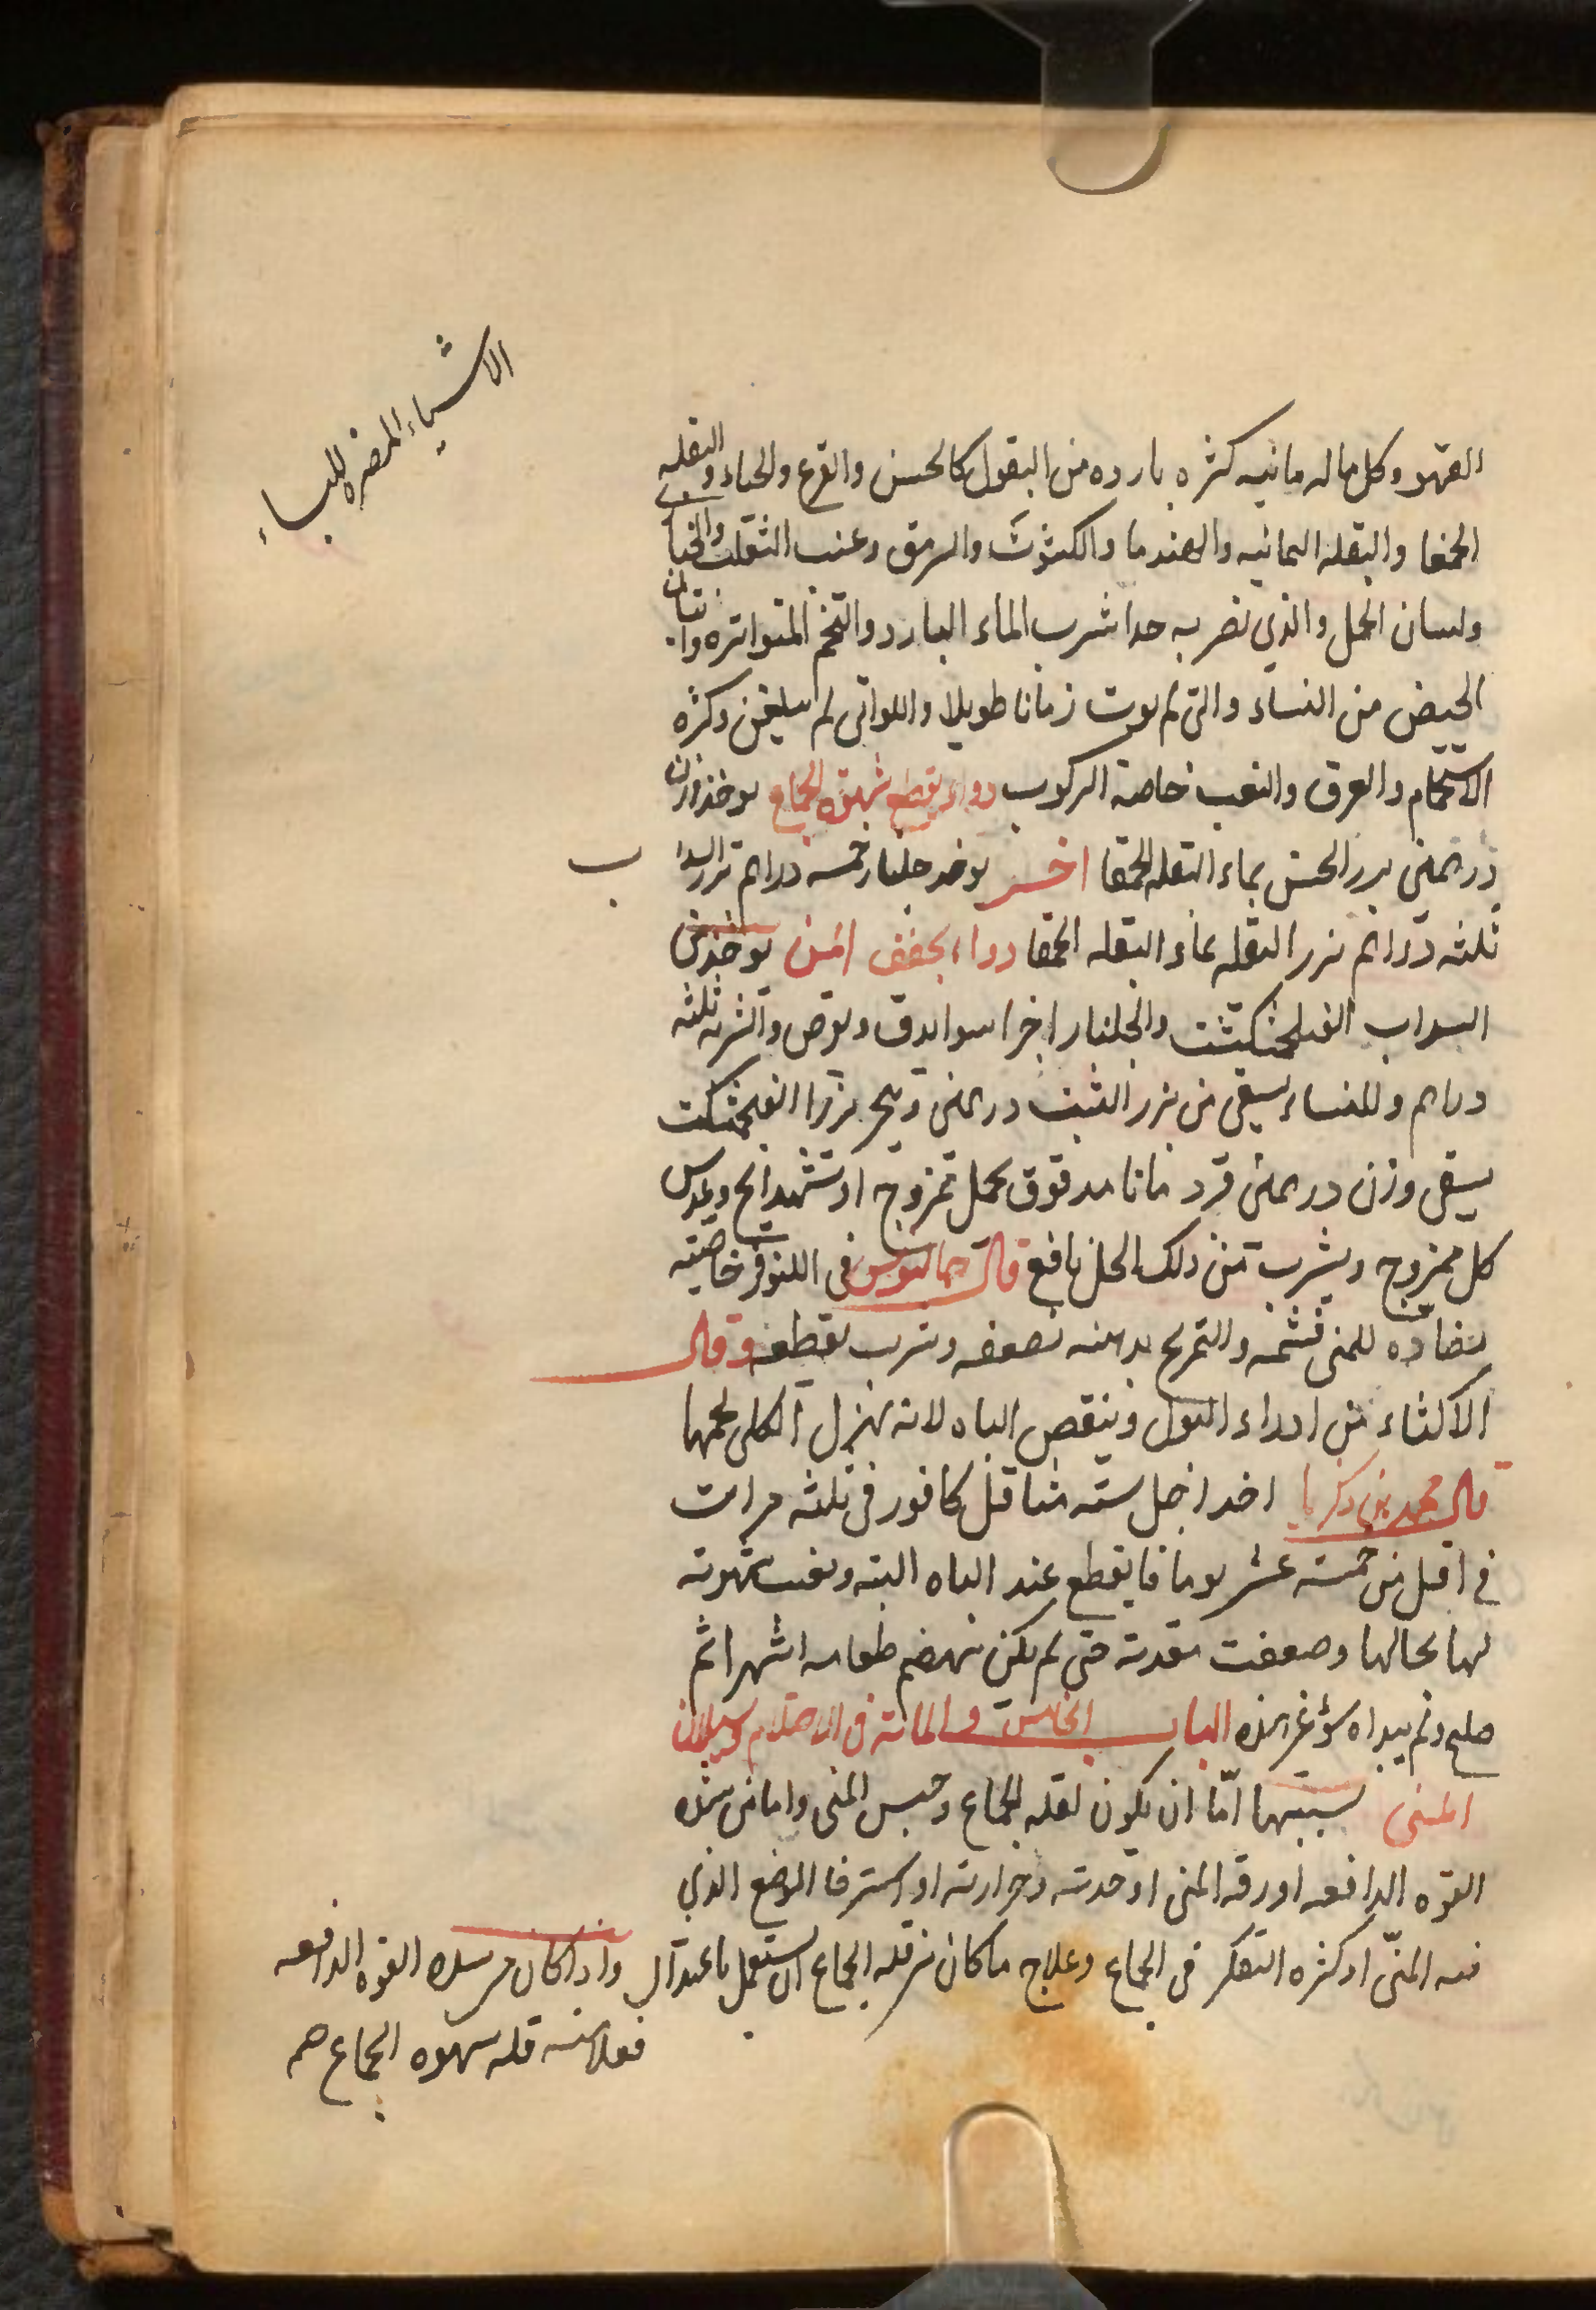 الاشياء المضره للباء
القهر وكل ماله مائيه كثره بارده من البقول كالخس والقرع والخباء والبقله
الحمقا والبقله اليمانيه والهندبا والكشوث والسرمق وعنب الثعلب والخيار
ولسان الحمل والذي تضر به جدا شرب الماء البارد والتخم المتواتره واتيان
الحيض من النساء والتي لم توت زمانا طويلا واللواتي لم يبلغن وكثره
الاستحمام والعرق والتعب خاصة الركوب دواء يقطع شهوة الجماع يوخذ وزن
درهمين بزر الخس بماء البقله الحمقا اخر يوخذ جلنار خمسه دراهم بزر السدا
ب
ثلثه دراهم بزر البقله بماء البقله الحمقا دواء يجفف المنى يوخذ من
السداب الفنجنكشت والجلنار اجزا سوا يدق ويقرص والشربه ثلثه
دراهم وللنساء يسقى من بزر الشبث درهمين ويبخر بزر الفنجنكشت
يسقى وزن درهمين قردمانا مدقوق بخل ممزوج او شهدانج وعدس
كل ممزوج ويشرب من ذلك الخل نافع قال جالينوس في اللنوفر خاصيته
مضاده للمنى فشمه والتمريخ بدهنه يضعفه وشربه يقطعه وقال
الاكثار من ادرار البول وينقص الباه لانه يهزل الكلى لحمها
قال محمد بن زكريا اخذ رجل سته مثاقيل كافور في ثلثه مرات
في اقل من خمسة عشر يوما فانقطع عنه الباه البته وبقيت شهوته
لها بحالها وضعفت معدته حتى لم يكن يهضم طعامه اشهرا ثم
صلح ولم يبدا سؤ غير هذه الباب الخامس والمائة في الاحتلام وسيلان
المنى سببهما امّا ان يكون لقله الجماع وحبس المنى واما من شده
القوه الدافعه او رقه المنى او حدته وحرارته او استرخا الموضع الذي
فيه المنىّ او كثره التفكر في الجماع وعلاج ما كان من قله الجماع ان يستعمل باعتدال واذا كان من شده القوه الدافعه
فعلامته قله شهوه الجماع